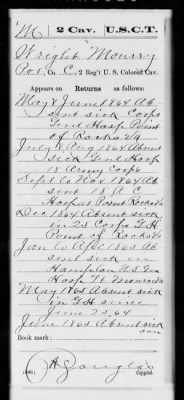 M | 2 Cav. | U.S.C.T.
Wright Mourry
Pvt, Co. C, 2 Reg't U. S. Colored Cav.
Appears on
Returns as follows:
May & June 1864 Ab-
sent sick Corps
Genl Hosp Point
of Rocks Va
July & Aug 1864 Absent
sick Genl Hosp
18 Army Corps
Sept to Nov 1864 Ab
sent 18 A C
Hosp at Point Rocks Va
Dec 1864 Absent sick
in 25 Corps
Point of Rocks Va
Jan to Apr 1865 Ab
sent sick in
Hampton
Hosp Ft Monroe Va
May 1865 Absent sick
in GH since
June 23, 64
June 1865 Absent sick
Book mark:
(546)
Copyist.